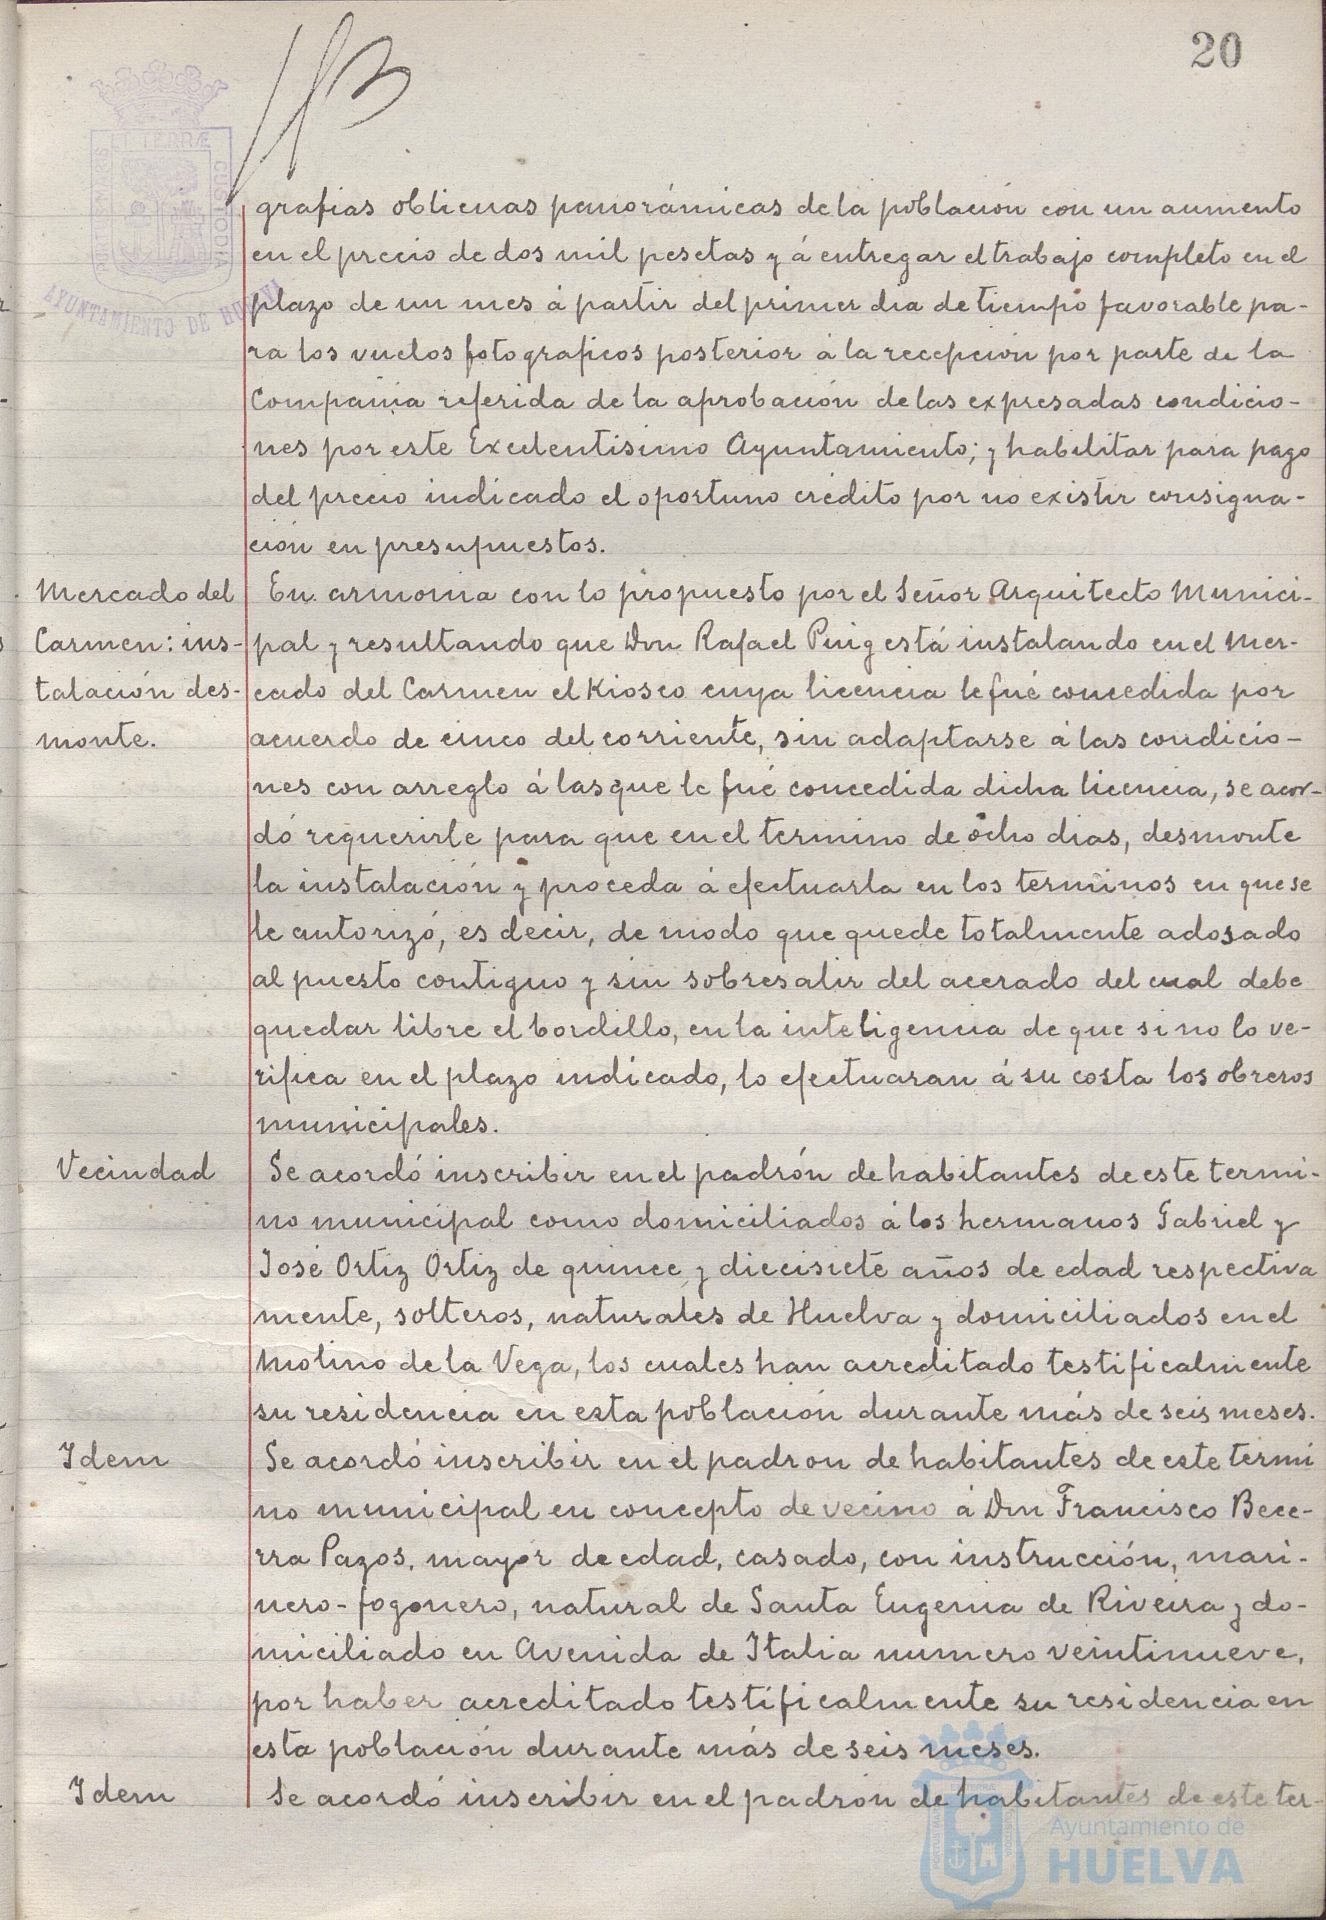 20
PORTUS MARIS ET TERRÆ CUSTODIA
AYUNTAMIENTO DE HUELVA
grafias oblicuas panorámicas de la población con un aumento
en el precio de dos mil pesetas y á entregar el trabajo completo en el
plazo de un mes á partir del primer dia de tiempo favorable pa-
ra los vuelos fotograficos posterior á la recepción por parte de la
Compañia referida de la aprobación de las expresadas condicio-
nes por este Excelentisimo Ayuntamiento; y habilitar para pago
del precio indicado el oportuno crédito por no existir consigna-
ción en presupuestos.
Mercado del
Carmen: ins-
talación des-
monte.
En armonia con lo propuesto por el Señor Arquitecto Munici-
pal y resultando que Don Rafael Puig está instalando en el Mer-
cado del Carmen el Kiosco cuya licencia le fué concedida por
acuerdo de cinco del corriente, sin adaptarse á las condicio-
nes con arreglo á las que le fué concedida dicha licencia, se acor-
dó requerirle para que en el termino de ocho dias, desmonte
la instalación y proceda á efectuarla en los terminos en que se
le autorizó, es decir, de modo que quede totalmente adosado
al puesto contiguo y sin sobresalir del acerado del cual debe
quedar libre el bordillo, en la inteligencia de que si no lo ve-
rifica en el plazo indicado, lo efectuaran á su costa los obreros
municipales.
Vecindad
Se acordó inscribir en el padrón de habitantes de este termi-
no municipal como domiciliados á los hermanos Gabriel y
José Ortiz Ortiz de quince y diecisiete años de edad respectiva
mente, solteros, naturales de Huelva y domiciliados en el
Molino de la Vega, los cuales han acreditado testificalmente
su residencia en esta población durante más de seis meses.
Idem
Se acordó inscribir en el padron de habitantes de este termi
no municipal en concepto de vecino á Don Francisco Bece-
rra Pazos, mayor de edad, casado, con instrucción, mari-
nero-fogonero, natural de Santa Eugenia de Riveira y do-
miciliado en Avenida de Italia numero veintinueve,
por haber acreditado testificalmente su residencia en
esta población durante más de seis meses.
Idem
Se acordó inscribir en el padrón de habitantes de este ter-
Ayuntamiento de
HUELVA